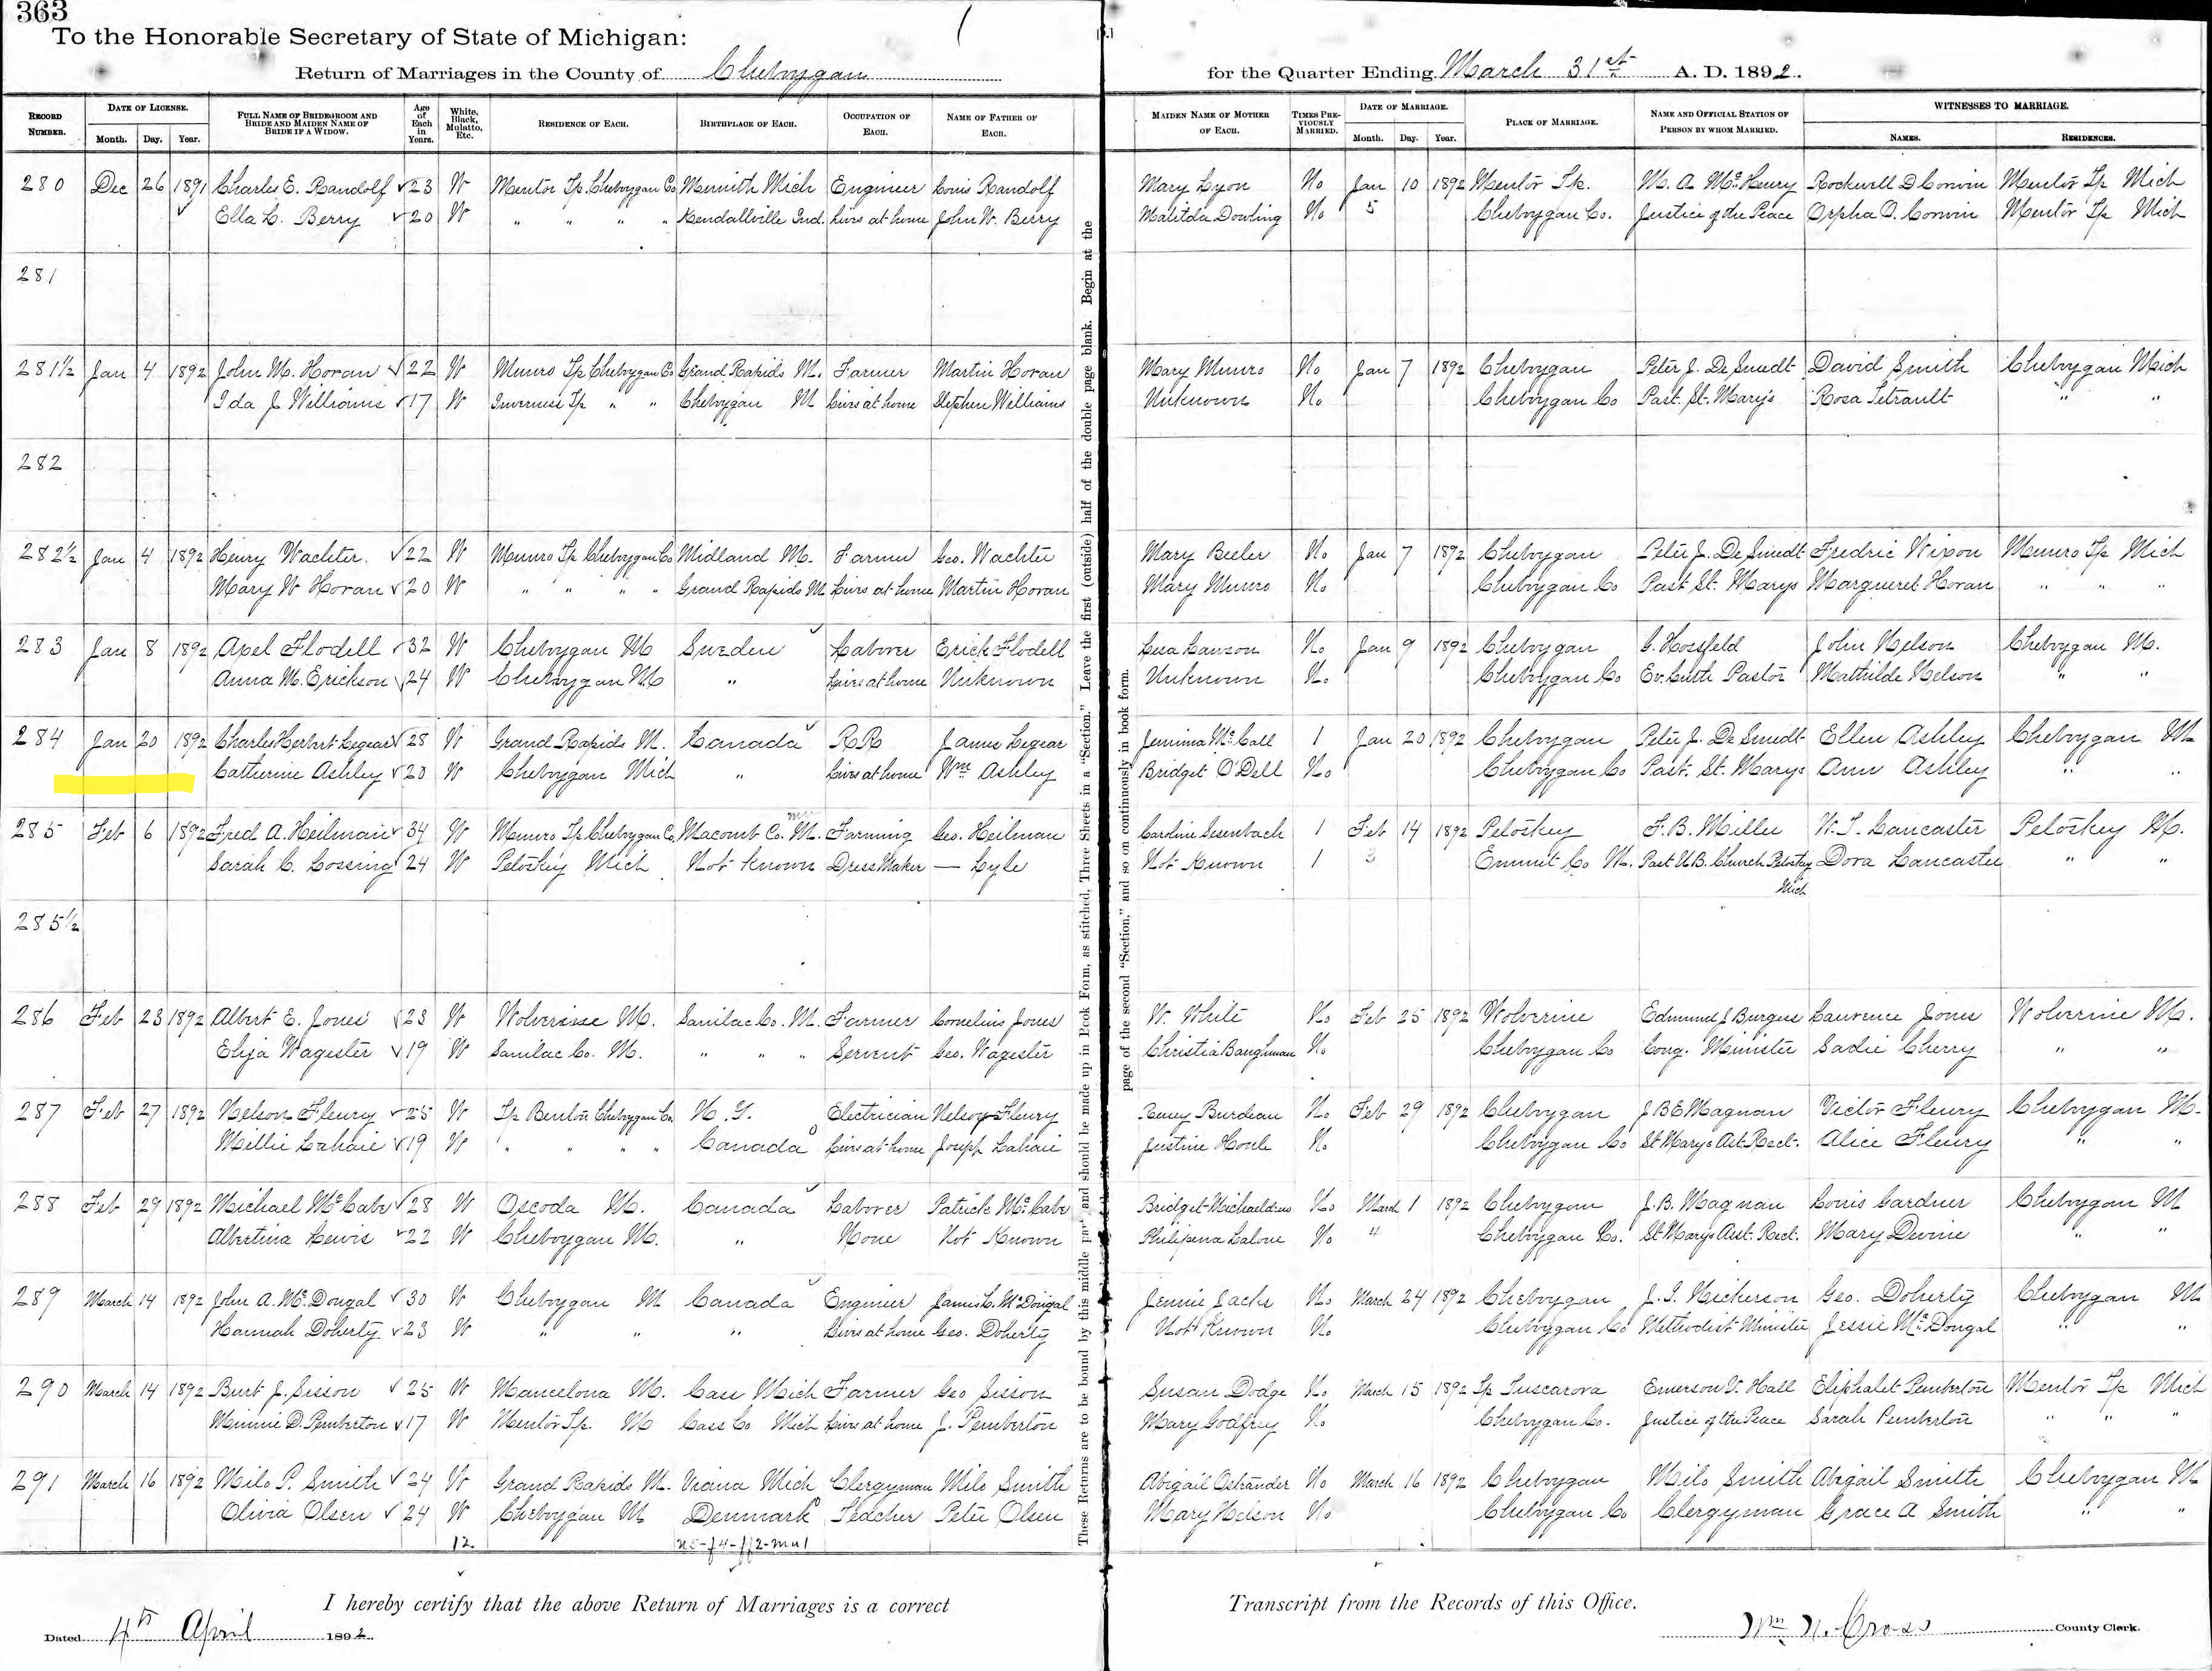 363
To the Honorable Secretary of State of Michigan:
Return of Marriages in the County of Cheboygan for the Quarter Ending March 31st A. D. 1892.
RECORD NUMBER. DATE OF LICENSE. Month. Day. Year. FULL NAME OF BRIDEGROOM AND BRIDE AND MAIDEN NAME OF BRIDE IF A WIDOW. Age of Each in Years. White, Black, Mulatto, Etc. RESIDENCE OF EACH. BIRTHPLACE OF EACH. OCCUPATION OF EACH. NAME OF FATHER OF EACH. MAIDEN NAME OF MOTHER OF EACH. TIMES PREVIOUSLY MARRIED. DATE OF MARRIAGE. Month. Day. Year. PLACE OF MARRIAGE. NAME AND OFFICIAL STATION OF PERSON BY WHOM MARRIED. WITNESSES TO MARRIAGE. NAMES. RESIDENCES.
280 Dec 26 1891 Charles E. Randolf 23 W Mentor Tp Cheboygan Co Mich Engineer Louis Randolf Mary Lyon No Jan 10 1892 Mentor Tp. M. A. McHenry Rockwell D Corwin Mentor Tp Mich
Ella L. Berry 20 W " " " " Kendallville Ind. Lives at home John W. Berry Malitda Dowling No 5 Cheboygan Co. Justice of the Peace Orpha O. Corwin Mentor Tp Mich
281
281½ Jan 4 1892 John M. Horan 22 W Munro Tp Cheboygan Co Grand Rapids M. Farmer Martin Horan Mary Munro No Jan 7 1892 Cheboygan Peter J. De Smedt David Smith Cheboygan Mich
Ida J Williams 17 W Inverness Tp " " Cheboygan M Lives at home Stephen Williams Unknown No Cheboygan Co Past. St. Mary's Rosa Tetrault " "
282
282½ Jan 4 1892 Henry Wachter 22 W Munro Tp Cheboygan Co Midland M. Farmer Geo. Wachter Mary Beeler No Jan 7 1892 Cheboygan Peter J. De Smedt Fredric Wixon Munro Tp Mich
Mary W Horan 20 W " " " " Grand Rapids M Lives at home Martin Horan Mary Munro No Cheboygan Co Past St. Marys Margueret Horan " " "
283 Jan 8 1892 Axel Flodell 32 W Cheboygan M Sweden Laborer Erick Flodell Lawson No Jan 9 1892 Cheboygan G. Hossfeld John Nelson Cheboygan M.
Anna M. Erickson 24 W Cheboygan M " Lives at home Unknown Unknown No. Cheboygan Co Ev. Luth Pastor Mathilde Nelson " "
284 Jan 20 1892 Charles Herbert Legear 28 W Grand Rapids M. Canada RR James Legear Jemima McCall 1 Jan 20 1892 Cheboygan Peter J. De Smedt Ellen Ashley Cheboygan M
Catherine Ashley 20 W Cheboygan Mich " Lives at home Wm Ashley Bridget O'Dell No Cheboygan Co Past. St. Marys Ann Ashley " "
285 Feb 6 1892 Fred A. Heilman 34 W Munro Tp Cheboygan Co. Macomb Co. M. Farming Geo. Heilman Caroline Sesenbach 1 Feb 14 1892 Petoskey F. B. Miller W. T. Lancaster Petoskey M.
Sarah C. Cossing 24 W Petoskey Mich Not Known Dress Maker — Lyle Not Known 1 3 Emmet Co M. Past U.B. Church Petoskey Mich Dora Lancaster " "
285½
286 Feb 23 1892 Albert E. Jones 23 W Wolverine M. Sanilac Co. M. Farmer Cornelius Jones W. White No Feb 25 1892 Wolverine Edmund J Burgess Laurence Jones Wolverine M.
Eliza Wagester 19 W Sanilac Co. M. " " " Servent Geo. Wagester Christia Baughman No Cheboygan Co Cong. Minister Sadie Cherry " "
287 Feb 27 1892 Nelson Fleury 25 W Tp Benton Cheboygan Co. N. Y. Electrician Nelson Fleury Burdeau No Feb 29 1892 Cheboygan J B E Magnan Victor Fleury Cheboygan M.
Millie Lahaie 19 W " " " " Canada Lives at home Joseph Lahaie Justine Houle No Cheboygan Co St Marys Ast. Rect. Alice Fleury " "
288 Feb 29 1892 Michael McCabe 28 W Oscoda M. Canada Laborer Patrick McCabe Bridget No March 1 1892 Cheboygan J. B. Magnan Louis Gardner Cheboygan M
Albertina Lewis 22 W Cheboygan M. " None Not Known Philipena Lalone No 4 Cheboygan Co. St Marys Asst. Rect. Mary Devine " "
289 March 14 1892 John A. McDougal 30 W Cheboygan M Canada Engineer James L. McDougal Jennie Jacks No. March 24 1892 Cheboygan J. S. Nickerson Geo. Doherty Cheboygan M
Hannah Doherty 23 W " " " Lives at home Geo. Doherty Not Known No Cheboygan Co Methodist Minister Jessie McDougal " "
290 March 14 1892 Burt J. Sisson 25 W Mancelona M. Cass Mich Farmer Geo Sisson Susan Dodge No March 15 1892 Tp Tuscarora Emerson V. Hall Eliphalet Pemberton Mentor Tp Mich
Minnie D. Pemberton 17 W Mentor Tp. M Cass Co Mich Lives at home J. Pemberton Mary Godfrey No Cheboygan Co. Justice of the Peace Sarah Pemberton " " "
291 March 16 1892 Milo P. Smith 24 W Grand Rapids M. Viana Mich Clergyman Milo Smith Abigail Ostrander No March 16 1892 Cheboygan Milo Smith Abigail Smith Cheboygan M
Olivia Olsen 24 W Cheboygan M Denmark Teacher Peter Olsen Mary Nelson No Cheboygan Co Clergyman Grace A Smith " "
12
These Returns are to be bound by this middle part and should be made up in Book Form, as stitched, Three Sheets in a "Section." Leave the first (outside) half of the double page blank. Begin at the
page of the second "Section," and so on continuously in book form.
I hereby certify that the above Return of Marriages is a correct Transcript from the Records of this Office.
Dated 4th April 1892. Wm N. Cross County Clerk.